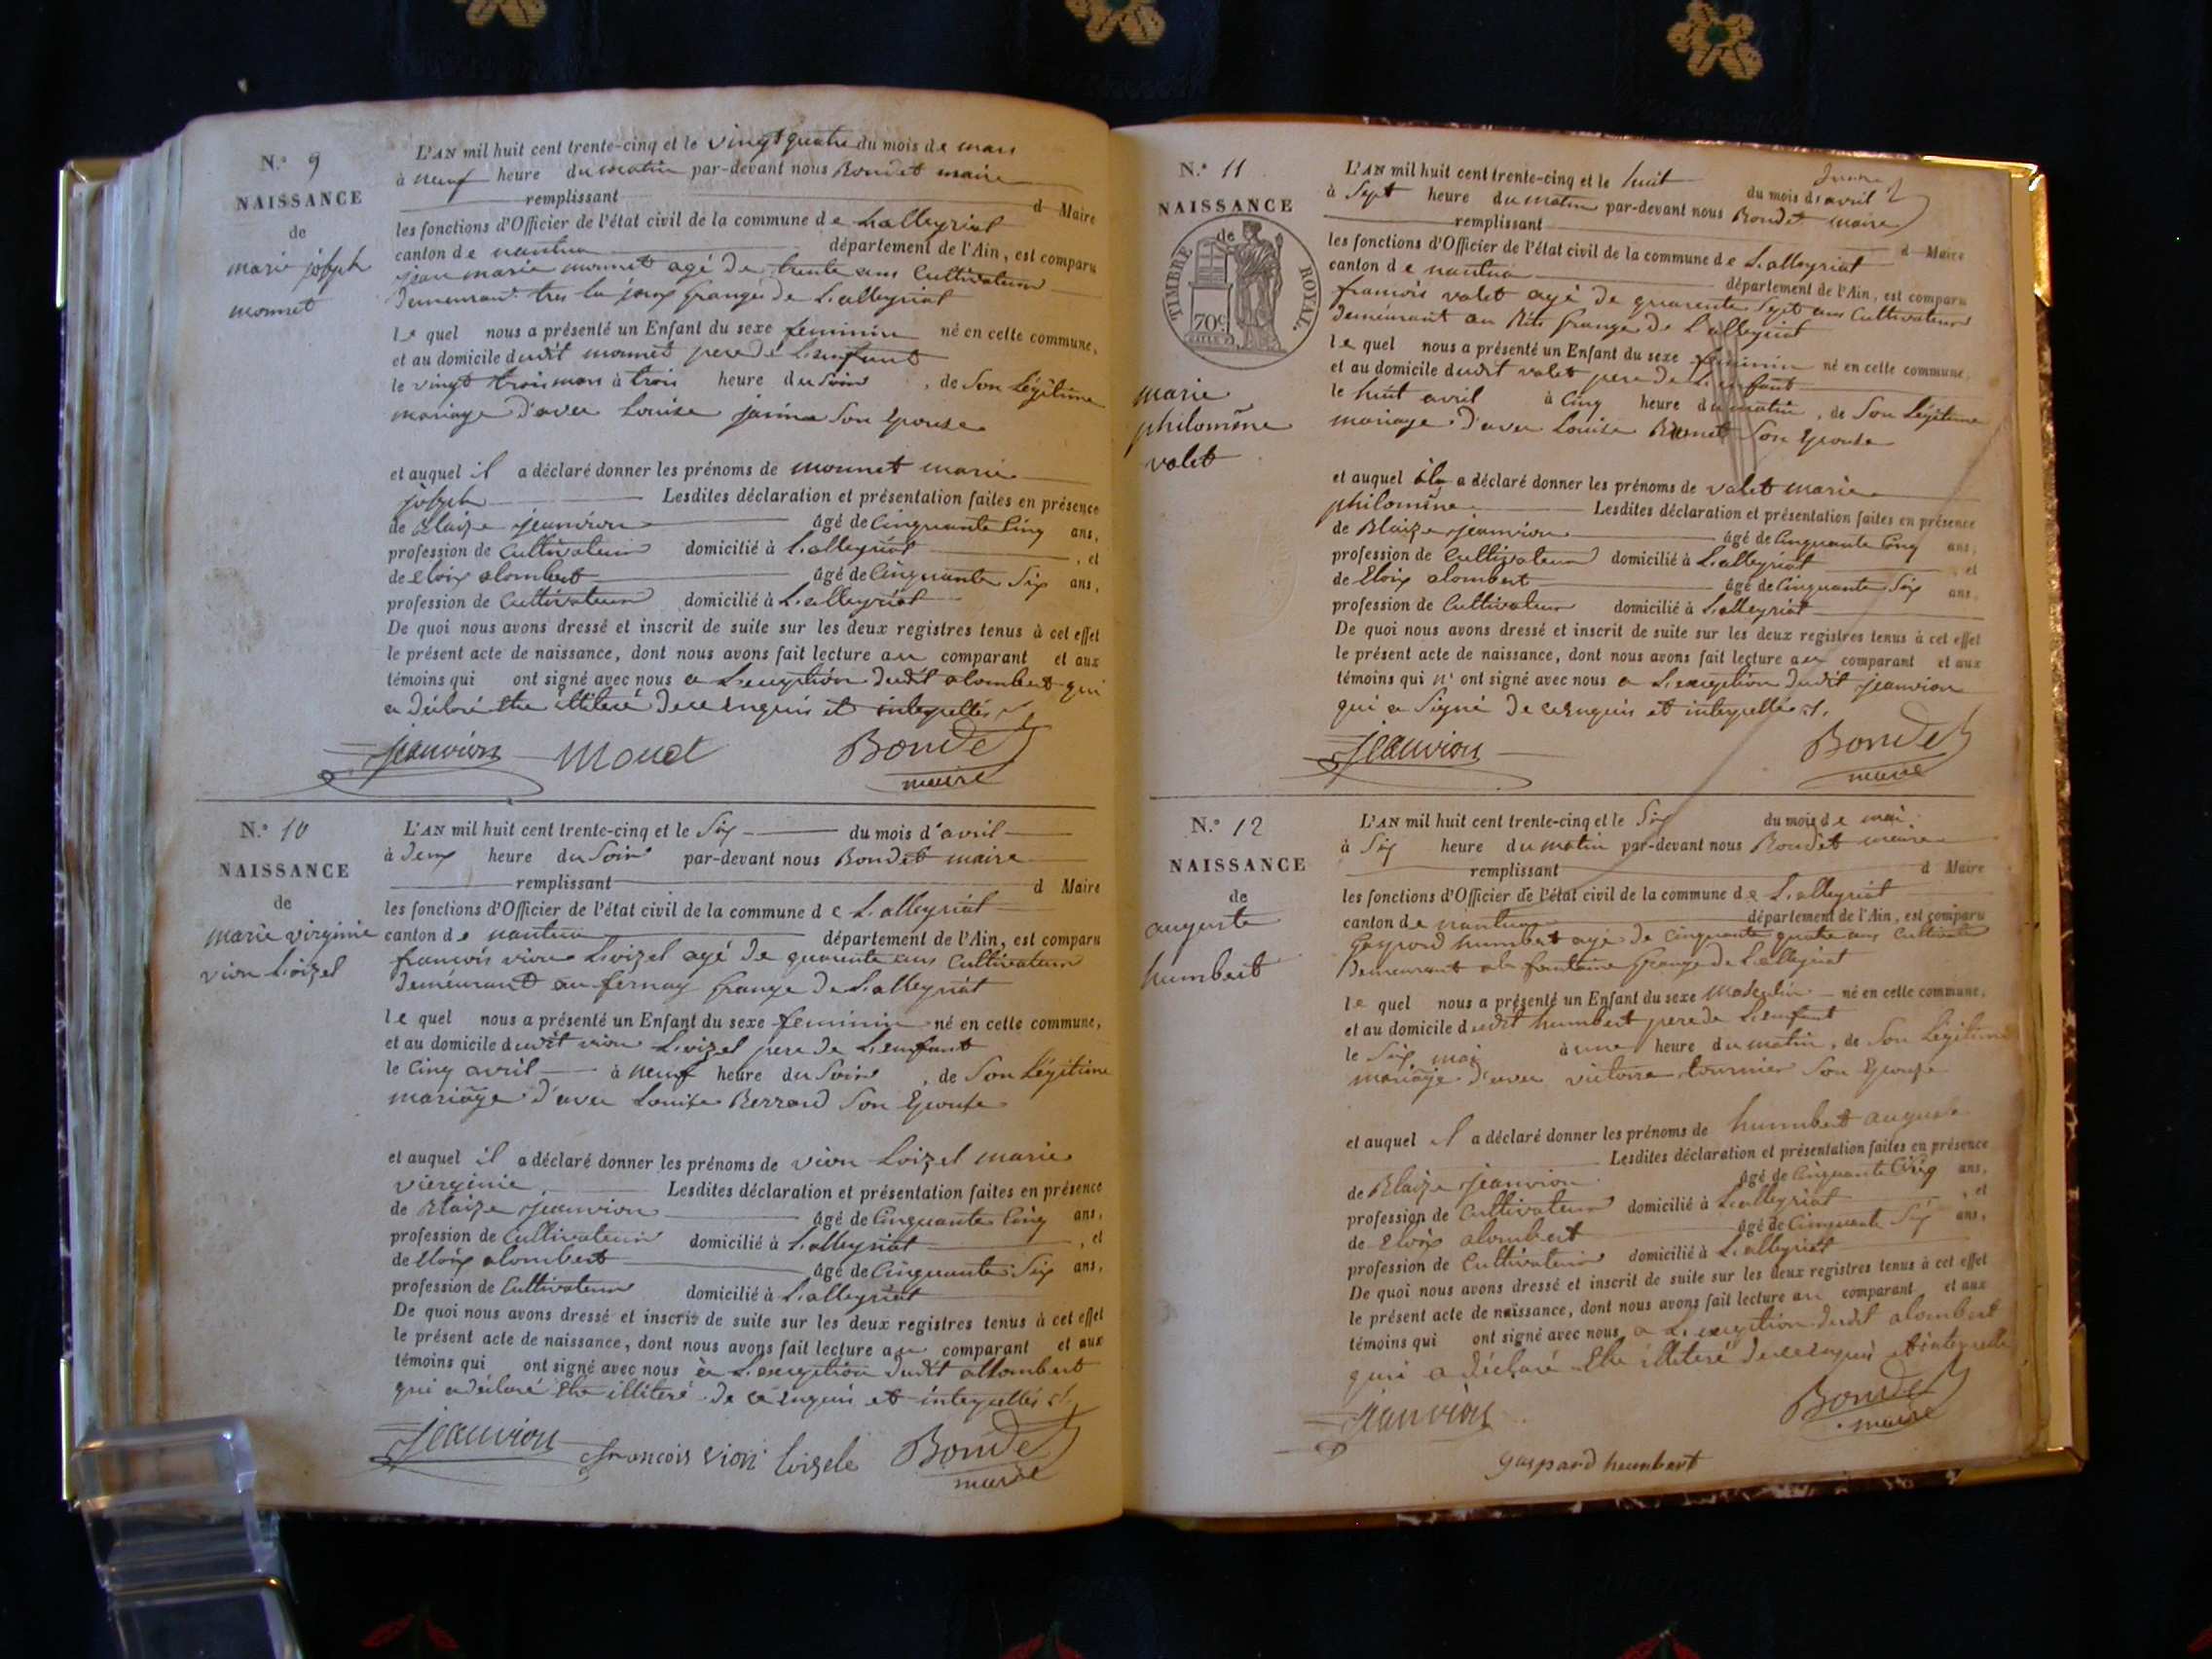 N.° 9
NAISSANCE
de
marie joseph
monnet
L'AN mil huit cent trente-cinq et le vingt quatre du mois de mars
à neuf heure du matin par-devant nous Bondet maire
remplissant d Maire
les fonctions d'Officier de l'état civil de la commune de Lalleyriat
canton de nantua département de l'Ain, est comparu
jean marie monnet agé de trente ans Cultivateur
demeurant grange de Lalleyriat
le quel nous a présenté un Enfant du sexe feminin né en cette commune,
et au domicile dudit monnet pere de L'enfant
le vingt trois mars à trois heure du Soir, de Son Légitime
mariage d'avec Louise Son Epouse
et auquel il a déclaré donner les prénoms de monnet marie
joseph Lesdites déclaration et présentation faites en présence
de Blaize jeanvion âgé de Cinquante Cinq ans,
profession de Cultivateur domicilié à Lalleyriat, et
de Eloix alombert âgé de Cinquante Six ans,
profession de Cultivateur domicilié à Lalleyriat
De quoi nous avons dressé et inscrit de suite sur les deux registres tenus à cet effet
le présent acte de naissance, dont nous avons fait lecture au comparant et aux
témoins qui ont signé avec nous a L'exception dudit alombert qui
a déclaré Etre illiteré de ce enquis et interpellés
jeanvion Bondet
maire
N.° 10
NAISSANCE
de
marie virginie
vion Loizel
L'AN mil huit cent trente-cinq et le Six du mois d'avril
à deux heure du Soir par-devant nous Bondet maire
remplissant d Maire
les fonctions d'Officier de l'état civil de la commune de Lalleyriat
canton de nantua département de l'Ain, est comparu
francois vion Loizel agé de quarente ans Cultivateur
demeurant au fernay grange de Lalleyriat
le quel nous a présenté un Enfant du sexe feminin né en cette commune,
et au domicile dudit vion Loizel pere de L'enfant
le Cinq avril à neuf heure du Soir, de Son Légitime
mariage d'avec Louise Berrard Son Epouse
et auquel il a déclaré donner les prénoms de vion Loizel marie
vierginie Lesdites déclaration et présentation faites en présence
de Blaize jeanvion âgé de Cinquante Cinq ans,
profession de Cultivateur domicilié à Lalleyriat, et
de Eloix alombert âgé de Cinquante Six ans,
profession de Cultivateur domicilié à Lalleyriat
De quoi nous avons dressé et inscrit de suite sur les deux registres tenus à cet effet
le présent acte de naissance, dont nous avons fait lecture au comparant et aux
témoins qui ont signé avec nous a L'exception dudit allombert
qui a déclaré Etre illiteré de ce enquis et interpellés
jeanvion francois vion loizele Bondet
maire
N.° 11
NAISSANCE
de
TIMBRE ROYAL.
70c
marie
philomine
valet
L'AN mil huit cent trente-cinq et le huit du mois d'avril
à Sept heure du matin par-devant nous Bondet maire
remplissant d Maire
les fonctions d'Officier de l'état civil de la commune de Lalleyriat
canton de nantua département de l'Ain, est comparu
francois valet agé de quarente Sept ans Cultivateur
demeurant au grange de Lalleyriat
le quel nous a présenté un Enfant du sexe feminin né en cette commune,
et au domicile dudit valet pere de L'enfant
le huit avril à Cinq heure du matin, de Son Légitime
mariage d'avec Louise Son Epouse
et auquel il a déclaré donner les prénoms de valet marie
philomine Lesdites déclaration et présentation faites en présence
de Blaize jeanvion âgé de Cinquante Cinq ans,
profession de Cultivateur domicilié à Lalleyriat, et
de Eloix alombert âgé de Cinquante Six ans,
profession de Cultivateur domicilié à Lalleyriat
De quoi nous avons dressé et inscrit de suite sur les deux registres tenus à cet effet
le présent acte de naissance, dont nous avons fait lecture au comparant et aux
témoins qui n'ont signé avec nous a L'exception dudit jeanvion
qui a Signé de ce enquis et interpellés
jeanvion Bondet
maire
N.° 12
NAISSANCE
de
auguste
humbert
L'AN mil huit cent trente-cinq et le Six du mois de mai
à Six heure du matin par-devant nous Bondet maire
remplissant d Maire
les fonctions d'Officier de l'état civil de la commune de Lalleyriat
canton de nantua département de l'Ain, est comparu
Gaspard humbert agé de Cinquante quatre ans Cultivateur
demeurant a la fontaine grange de Lalleyriat
le quel nous a présenté un Enfant du sexe masculin né en cette commune,
et au domicile dudit humbert pere de L'enfant
le Six mai à une heure du matin, de Son Légitime
mariage d'avec victoire tournier Son Epouse
et auquel il a déclaré donner les prénoms de humbert auguste
Lesdites déclaration et présentation faites en présence
de Blaize jeanvion âgé de Cinquante Cinq ans,
profession de Cultivateur domicilié à Lalleyriat, et
de Eloix alombert âgé de Cinquante Six ans,
profession de Cultivateur domicilié à Lalleyriat
De quoi nous avons dressé et inscrit de suite sur les deux registres tenus à cet effet
le présent acte de naissance, dont nous avons fait lecture au comparant et aux
témoins qui ont signé avec nous a L'exception dudit alombert
qui a déclaré Etre illiteré de ce enquis et interpellé
jeanvion Bondet
maire
gaspard humbert